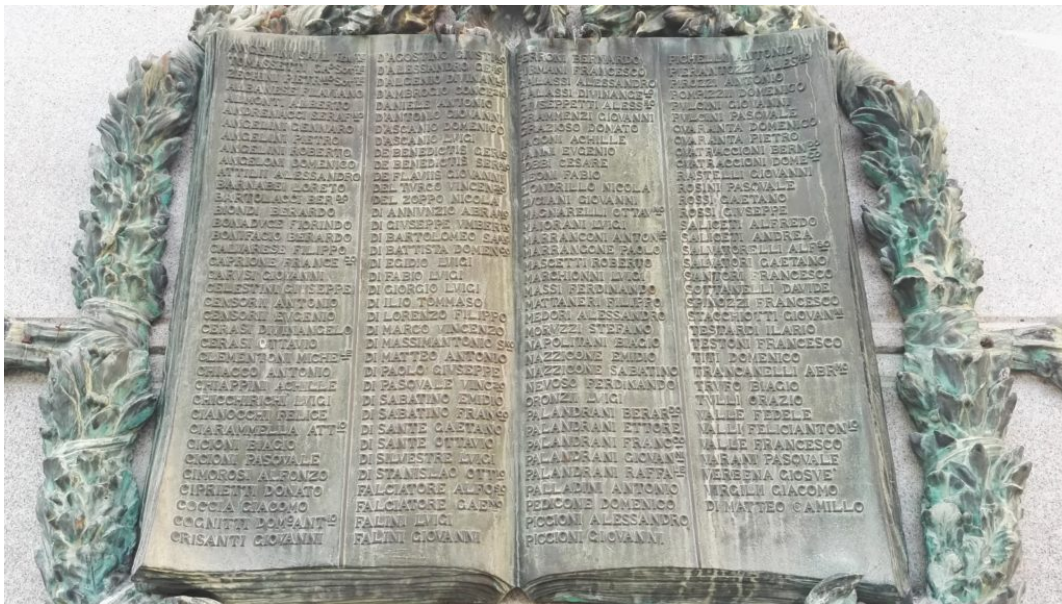 ALBANESE FILOMANO
ALMONTI ALBERTO
ANDRENACCI SERAF.NO
ANGELINI GENNARO
ANGELINI PIETRO
ANGELINI ROBERTO
ANGELONI DOMENICO
ATTILII ALESSANDRO
BARNABEI LORETO
BARTOLACCI BER.DO
BIONDI BERARDO
BONADVCE FIORINDO
BONIFACI BERARDO
CALVARESE FILIPPO
CAPRIONE FRANC.CO
CARVSI GIOVANNI
CELESTINI GIVSEPPE
CENSORII ANTONIO
CENSORII EVGENIO
CERASI DIVINANGELO
CERASI OTTAVIO
CLEMENTONI MICHE.LE
CHIACCO ANTONIO
CHIAPPINI ACHILLE
CHICCHIRICHÌ LVIGI
CIANOCCHI FELICE
CIARAMELLA ATT.IO
CICIONI BIAGIO
CICIONI PASQVALE
CIMOROSI ALFONZO
CIPRIETTI DONATO
COCCIA GIACOMO
COGNITTI DOM.O ANT.IO
CRISANTI GIOVANNI
D'AGOSTINO
D'AMBROGIO
DANIELE ANTONIO
D'ANTONIO GIOVANNI
D'ASCANIO DOMENICO
D'ASCANIO LVIGI
DE BENEDICTIS
DE BENEDICTIS
DE FLAVIIS GIOVANNI
DEL TVRCO VINCEN.O
DEL ZOPPO NICOLA
DI ANNVNZIO ABRA.MO
DI GIVSEPPE VMBERTO
DI BARTOLOMEO
DI BATTISTA DOMEN.CO
DI EGIDIO LVIGI
DI FABIO LVIGI
DI GIORGIO LVIGI
DI ILIO TOMMASO
DI LORENZO FILIPPO
DI MARCO VINCENZO
DI MASSIMANTONIO
DI MATTEO ANTONIO
DI PAOLO GIVSEPPE
DI PASQVALE VINC.ZO
DI SABATINO EMIDIO
DI SABATINO FRAN.CO
DI SANTE GAETANO
DI SANTE OTTAVIO
DI SILVESTRE LVIGI
DI STANISLAO OTT.IO
FALCIATORE ALFO.SO
FALCIATORE GAE.NO
FALINI LVIGI
FALINI GIOVANNI
FERRONI BERNARDO
FIRMANI FRANCESCO
GALASSI ALESSANDRO
GALASSI DIVINANGE.LO
GIVSEPPETTI ALESS.RO
GRAMMENZI GIOVANNI
GRAZIOSO DONATO
IACONI ACHILLE
IANNI EVGENIO
CESARE
LEONI FABIO
LONDRILLO NICOLA
LVCIANI GIOVANNI
MAGNARELLI OTTAV.IO
MAIORANI LVIGI
MARRANCONI ANTON.IO
MARRANCONE PAOLO
MASCETTI ROBERTO
MARCHIONNI LVIGI
MASSI FERDINANDO
MATTANERI FILIPPO
MEDORI ALESSANDRO
MORVZZI STEFANO
NAPOLITANI BIAGIO
NAZZICONE EMIDIO
NAZZICONE SABATINO
NEVOSO FERDINANDO
ORONZII LVIGI
PALANDRANI BERAR.DO
PALANDRANI ETTORE
PALANDRANI FRANC.CO
PALANDRANI GIOVAN.NI
PALANDRANI RAFFA.LE
PALLADINI ANTONIO
PEDICONE DOMENICO
PICCIONI ALESSANDRO
PICCIONI GIOVANNI
PICHELLI ANTONIO
ANTONIO
ROMPIZZI DOMENICO
PVLCINI GIOVANNI
PVLCINI PASQVALE
QVARANTA DOMENICO
QVARANTA PIETRO
QVATRACCIONI BERN.DO
QVATRACCIONI DOME.CO
RASTELLI GIOVANNI
ROSINI PASQVALE
ROSSI GAETANO
ROSSI GIVSEPPE
SALICETI ALFREDO
SALICETI ANDREA
SALVATORELLI ALF.DO
SALVATORI GAETANO
SANTORI FRANCESCO
SCIPANELLI DAVIDE
SPINOZZI FRANCESCO
STACCHIOTTI GIOVAN.NI
TESTARDI ILARIO
TESTONI FRANCESCO
TITI DOMENICO
TRANCANELLI ABR.MO
TRVFO BIAGIO
TVLLI ORAZIO
VALLE FEDELE
VALLI FELICIANTON.IO
VALLE FRANCESCO
VARANI PASQVALE
VERBENA GIOSVE'
VIRGILII GIACOMO
DI MATTEO CAMILLO